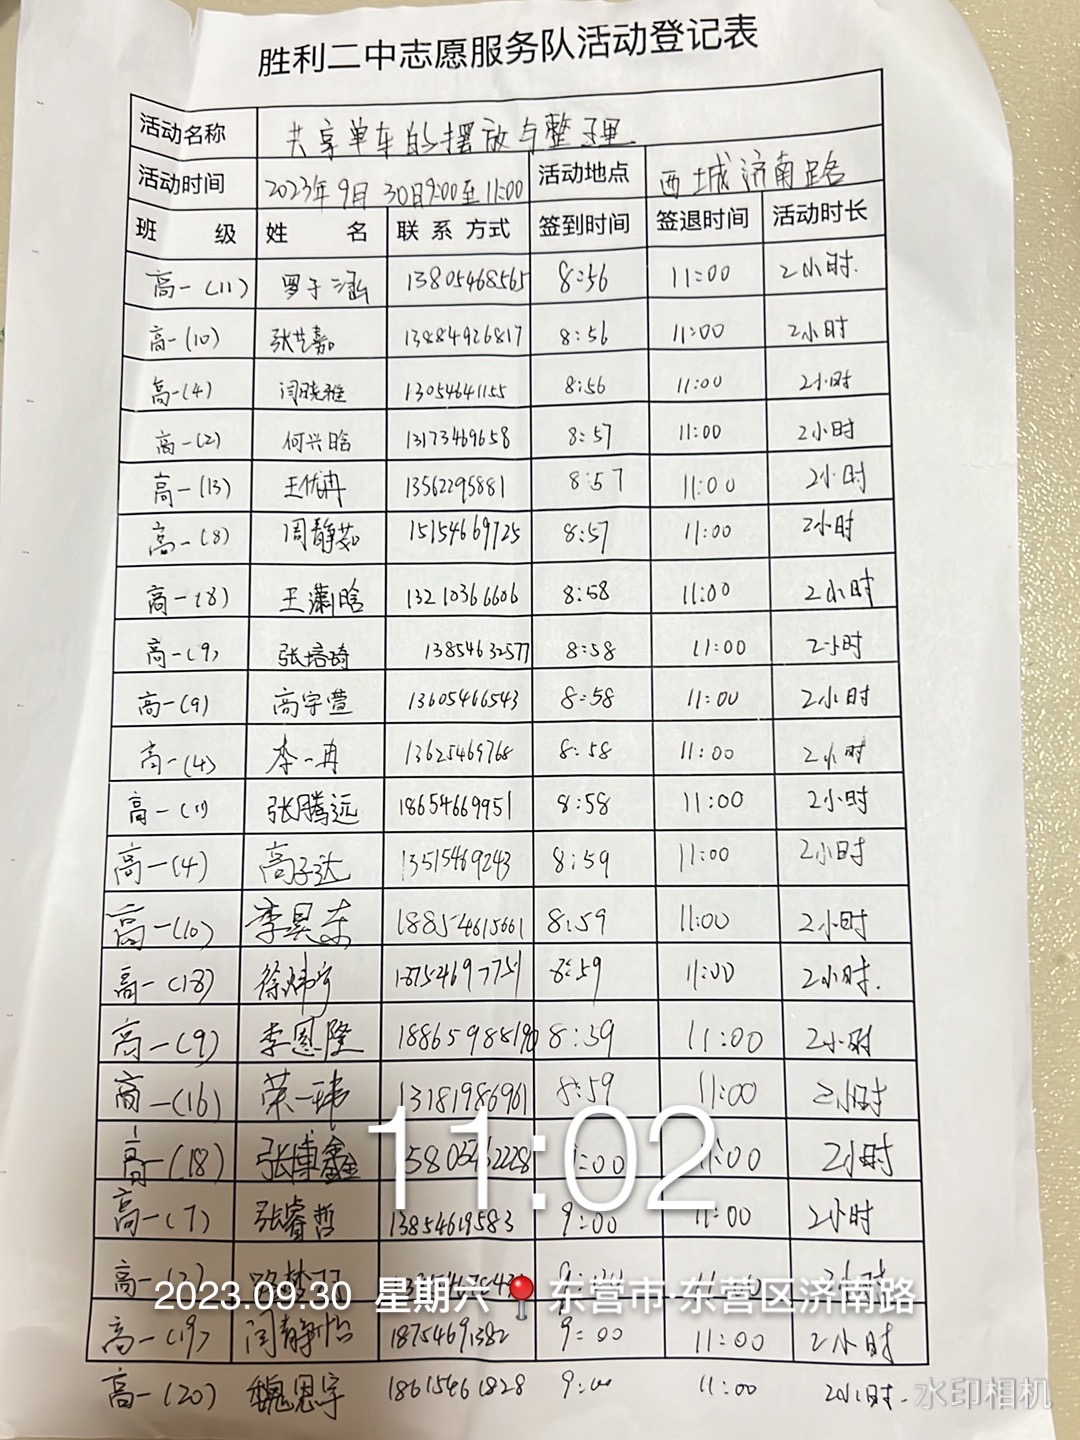 胜利二中志愿服务队活动登记表
活动名称 共享单车的摆放与整理
活动时间 2023年9月30日9:00至11:00 活动地点 西城济南路
班 级 姓 名 联系方式 签到时间 签退时间 活动时长
高一(11) 罗于涵 13805468565 8:56 11:00 2小时.
高一(10) 张艺嘉 13884926817 8:56 11:00 2小时
高一(4) 闫晓雅 13054641155 8:56 11:00 2小时
高一(2) 何兴晗 13173469658 8:57 11:00 2小时
高一(13) 王优冉 13562295881 8:57 11:00 2小时
高一(8) 周静茹 15154669725 8:57 11:00 2小时
高一(8) 王潇晗 13210366606 8:58 11:00 2小时
高一(9) 张培琦 13854632577 8:58 11:00 2小时
高一(9) 高宇萱 13605466543 8:58 11:00 2小时
高一(4) 李一冉 13625469768 8:58 11:00 2小时
高一(1) 张腾远 18654669951 8:58 11:00 2小时
高一(4) 高子达 13515469243 8:59 11:00 2小时
高一(10) 李昊东 18854615661 8:59 11:00 2小时
高一(18) 徐炜宇 18754697751 8:59 11:00 2小时.
高一(9) 李恩隆 18865988190 8:59 11:00 2小时
高一(16) 荣一玮 13181986961 8:59 11:00 2小时
高一(18) 张博鑫 15805462228 9:00 11:00 2小时
11:02
高一(7) 张睿哲 13854619583 9:00 11:00 2小时
高一 11:00 2小时
2023.09.30 星期六 📍东营市·东营区济南路
高一(19) 闫静怡 18754691382 9:00 11:00 2小时
高一(20) 魏恩宇 18615461828 9:00 11:00 2小时.
水印相机